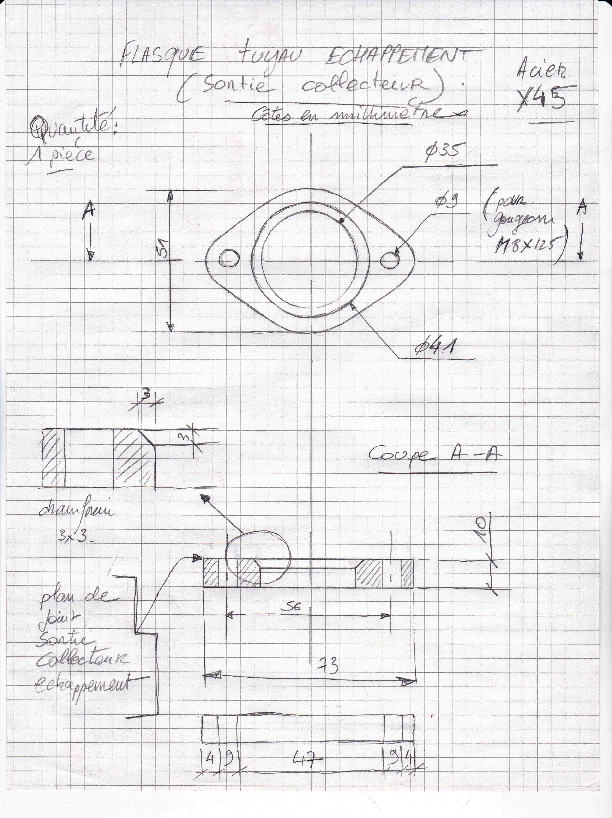 FLASQUE tuyau ECHAPPEMENT
(Sortie collecteur).
Côtes en millimètre
Acier
X45
Quantité:
1 pièce
Ø35
Ø9
(pour
goujon
M8X125)
A
A
51
Ø41
3
3
Coupe A-A
chamfrein
3x3.
10
plan de
joint
Sortie
Collecteur
echappement
56
73
4
9
47
9
4